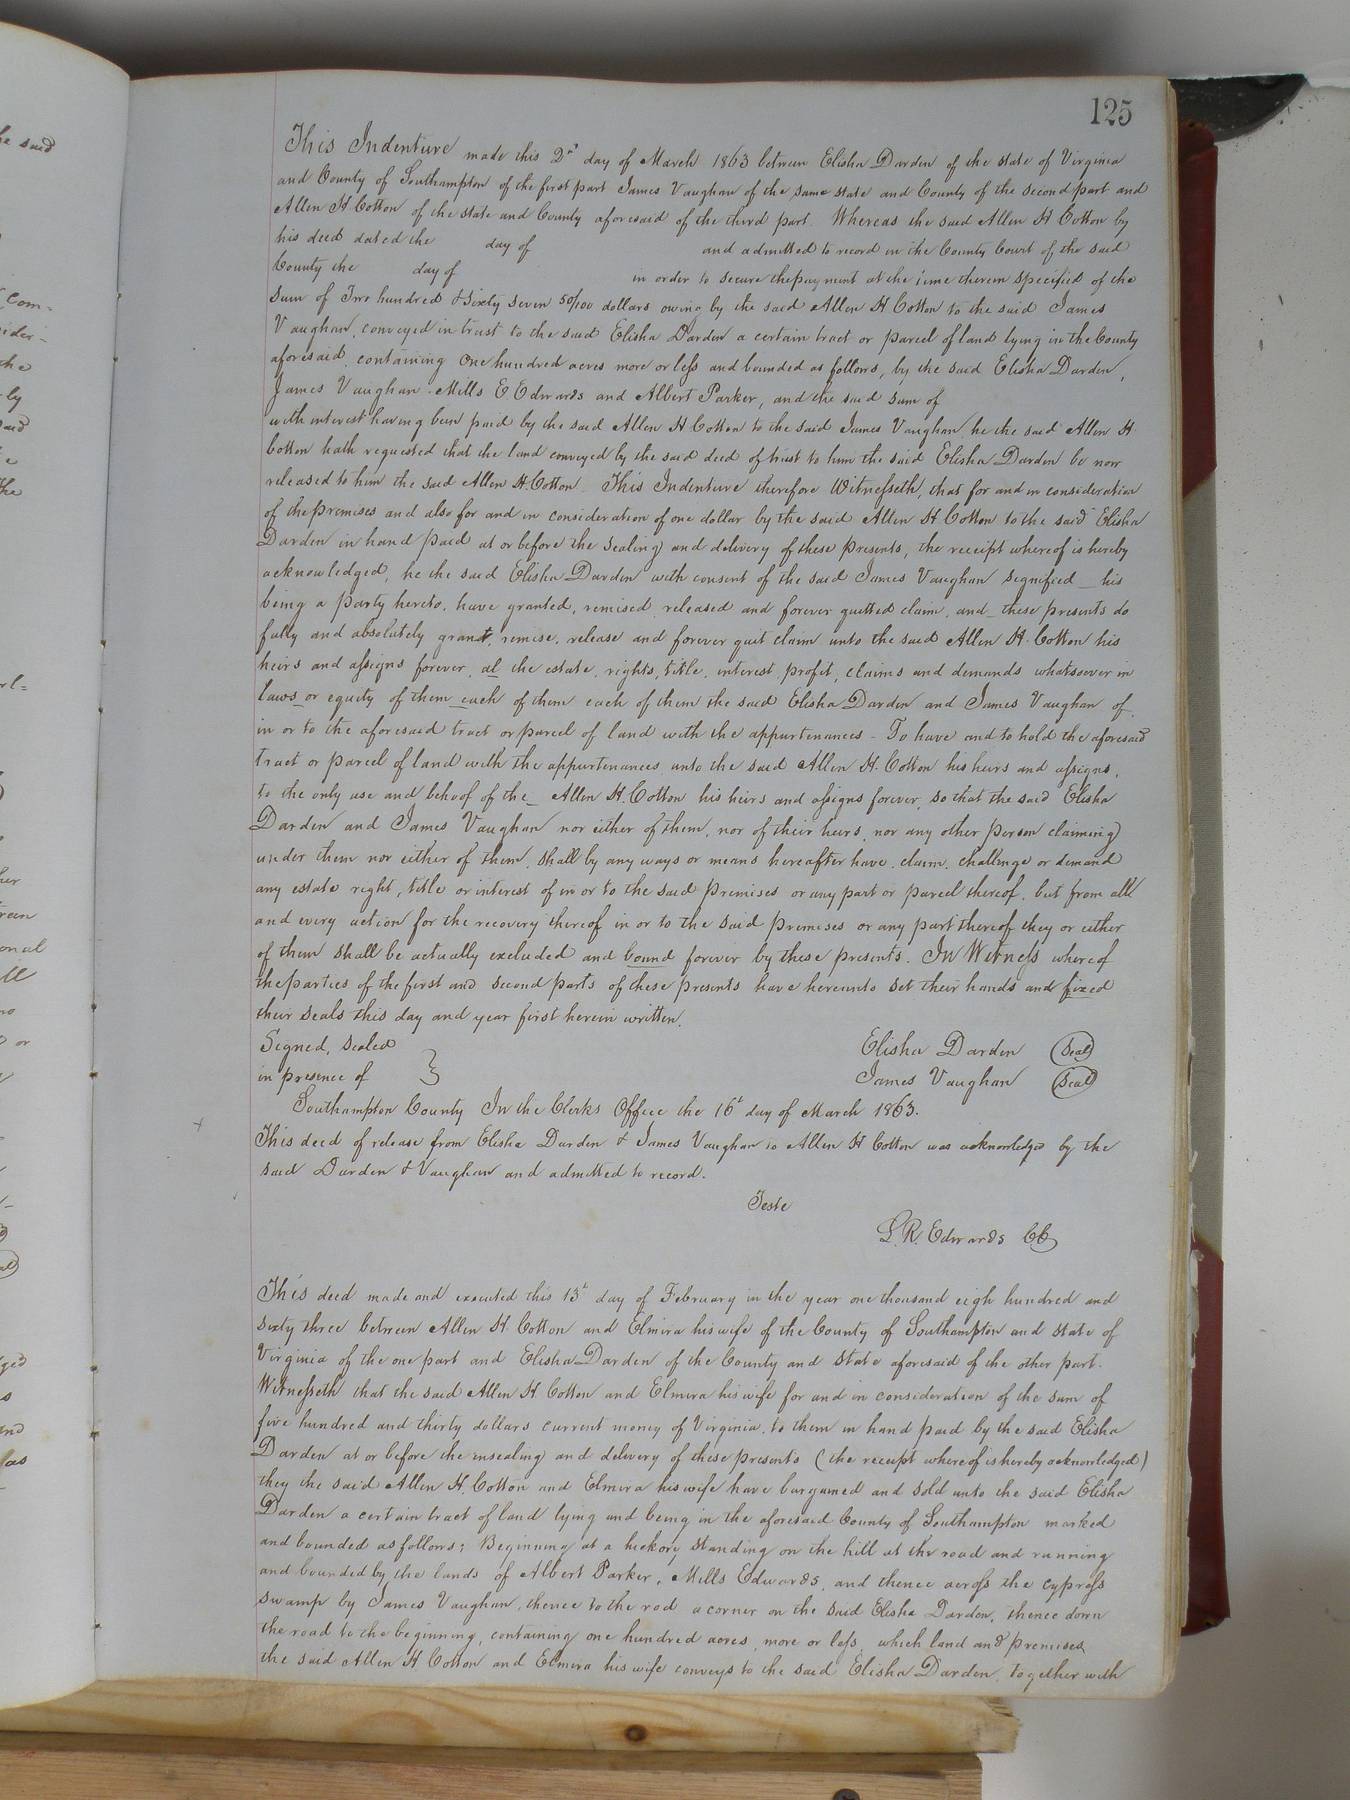 125
This Indenture made this 2nd day of March 1863 between Elisha Darden of the state of Virginia
and County of Southampton of the first part James Vaughan of the same state and County of the second part and
Allen H Cotton of the state and County aforesaid of the third part. Whereas the said Allen H Cotton by
his deed dated the day of and admitted to record in the County Court of the said
County the day of in order to secure the payment at the time therein specified of the
sum of Two hundred & sixty seven 50/100 dollars owing by the said Allen H Cotton to the said James
Vaughan, conveyed in trust to the said Elisha Darden a certain tract or parcel of land lying in the County
aforesaid containing One hundred acres more or less and bounded as follows, by the said Elisha Darden,
James Vaughan. Mills E Edwards and Albert Parker, and the said sum of
with interest having been paid by the said Allen H Cotton to the said James Vaughan he the said Allen H
Cotton hath requested that the land conveyed by the said deed of trust to him the said Elisha Darden be now
released to him the said Allen H. Cotton. This Indenture therefore Witnesseth, that for and in consideration
of the premises and also for and in consideration of one dollar by the said Allen H Cotton to the said Elisha
Darden in hand paid at or before the sealing and delivery of these presents, the receipt whereof is hereby
acknowledged, he the said Elisha Darden with consent of the said James Vaughan signified his
being a party hereto, have granted, remised released and forever quitted claim, and these presents do
fully and absolutely grant, remise, release and forever quit claim unto the said Allen H. Cotton his
heirs and assigns forever, al the estate, rights, title, interest, profit, claims and demands whatsoever in
laws or equity of them each of them each of them the said Elisha Darden and James Vaughan of
in or to the aforesaid tract or parcel of land with the appurtenances - To have and to hold the aforesaid
tract or parcel of land with the appurtenances unto the said Allen H. Cotton his heirs and assigns,
to the only use and behoof of the Allen H. Cotton his heirs and assigns forever, so that the said Elisha
Darden and James Vaughan nor either of them, nor of their heirs, nor any other person claiming
under them nor either of them, shall by any ways or means hereafter have, claim, challenge or demand
any estate right, title or interest of in or to the said premises or any part or parcel thereof, but from all
and every action for the recovery thereof in or to the said premises or any part thereof they or either
of them shall be actually excluded and bound forever by these presents. In Witness whereof
the parties of the first and second parts of these presents have hereunto set their hands and fixed
their seals this day and year first herein written.
Signed, sealed Elisha Darden (Seal)
in presence of } James Vaughan (Seal)
Southampton County In the Clerks Office the 16t day of March 1863.
This deed of release from Elisha Darden & James Vaughan to Allen H Cotton was acknowledged by the
said Darden & Vaughan and admitted to record.
Teste
L. R. Edwards CC
This deed made and executed this 13t day of February in the year one thousand eigh hundred and
sixty three between Allen H. Cotton and Elmira his wife of the County of Southampton and state of
Virginia of the one part and Elisha Darden of the County and state aforesaid of the other part.
Witnesseth that the said Allen H Cotton and Elmira his wife for and in consideration of the sum of
five hundred and thirty dollars current money of Virginia, to them in hand paid by the said Elisha
Darden at or before the ensealing and delivery of these presents (the receipt whereof is hereby acknowledged)
they the said Allen H. Cotton and Elmira his wife have bargained and sold unto the said Elisha
Darden a certain tract of land lying and being in the aforesaid County of Southampton marked
and bounded as follows; Beginning at a hickory standing on the hill at the road and running
and bounded by the lands of Albert Parker, Mills Edwards, and thence across the cypress
swamp by James Vaughan, thence to the rod a corner on the said Elisha Darden, thence down
the road to the beginning, containing one hundred acres, more or less, which land and premises
the said Allen H Cotton and Elmira his wife conveys to the said Elisha Darden, together with